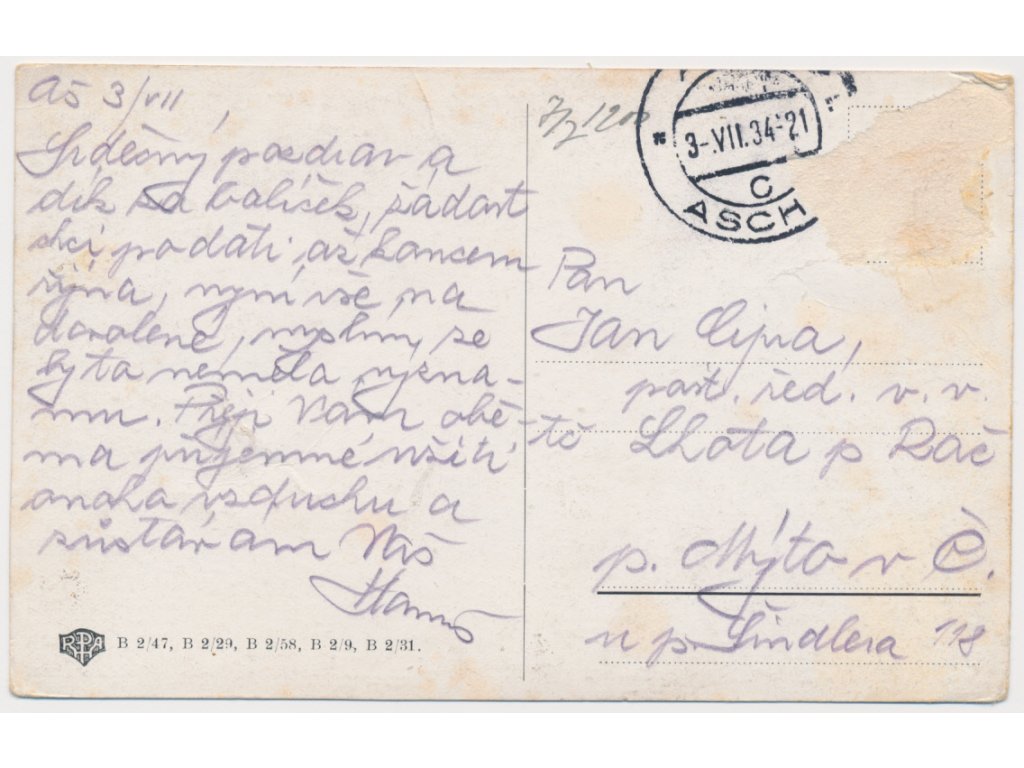 Aš 3/VII
Srdečný pozdrav a
dík za balíček, žádost
chci podati až koncem
října, nyní vše na
dovolené, myslím, se
by to nemělo význa-
mu. Přeji Vám obě-
ma příjemné užití
onoho vzduchu a
zůstávám Váš
Hanuš
B 2/47, B 2/29, B 2/58, B 2/9, B 2/31.
7/7 1200
3-.VII.34-21
C
ASCH
Pan
Jan Cipra,
pošt. řed. v. v.
tč Lhota p Rač
p. Mýto v Č.
u p. Šindlera 118